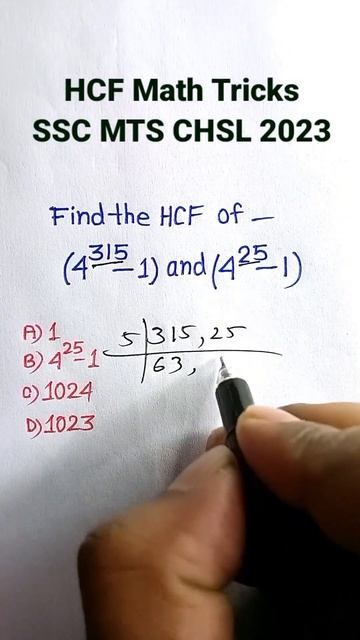 HCF Math Tricks
SSC MTS CHSL 2023
Find the HCF of —
(4^315 - 1) and (4^25 - 1)
A) 1
B) 4^25 - 1
C) 1024
D) 1023
5 | 315, 25
63,